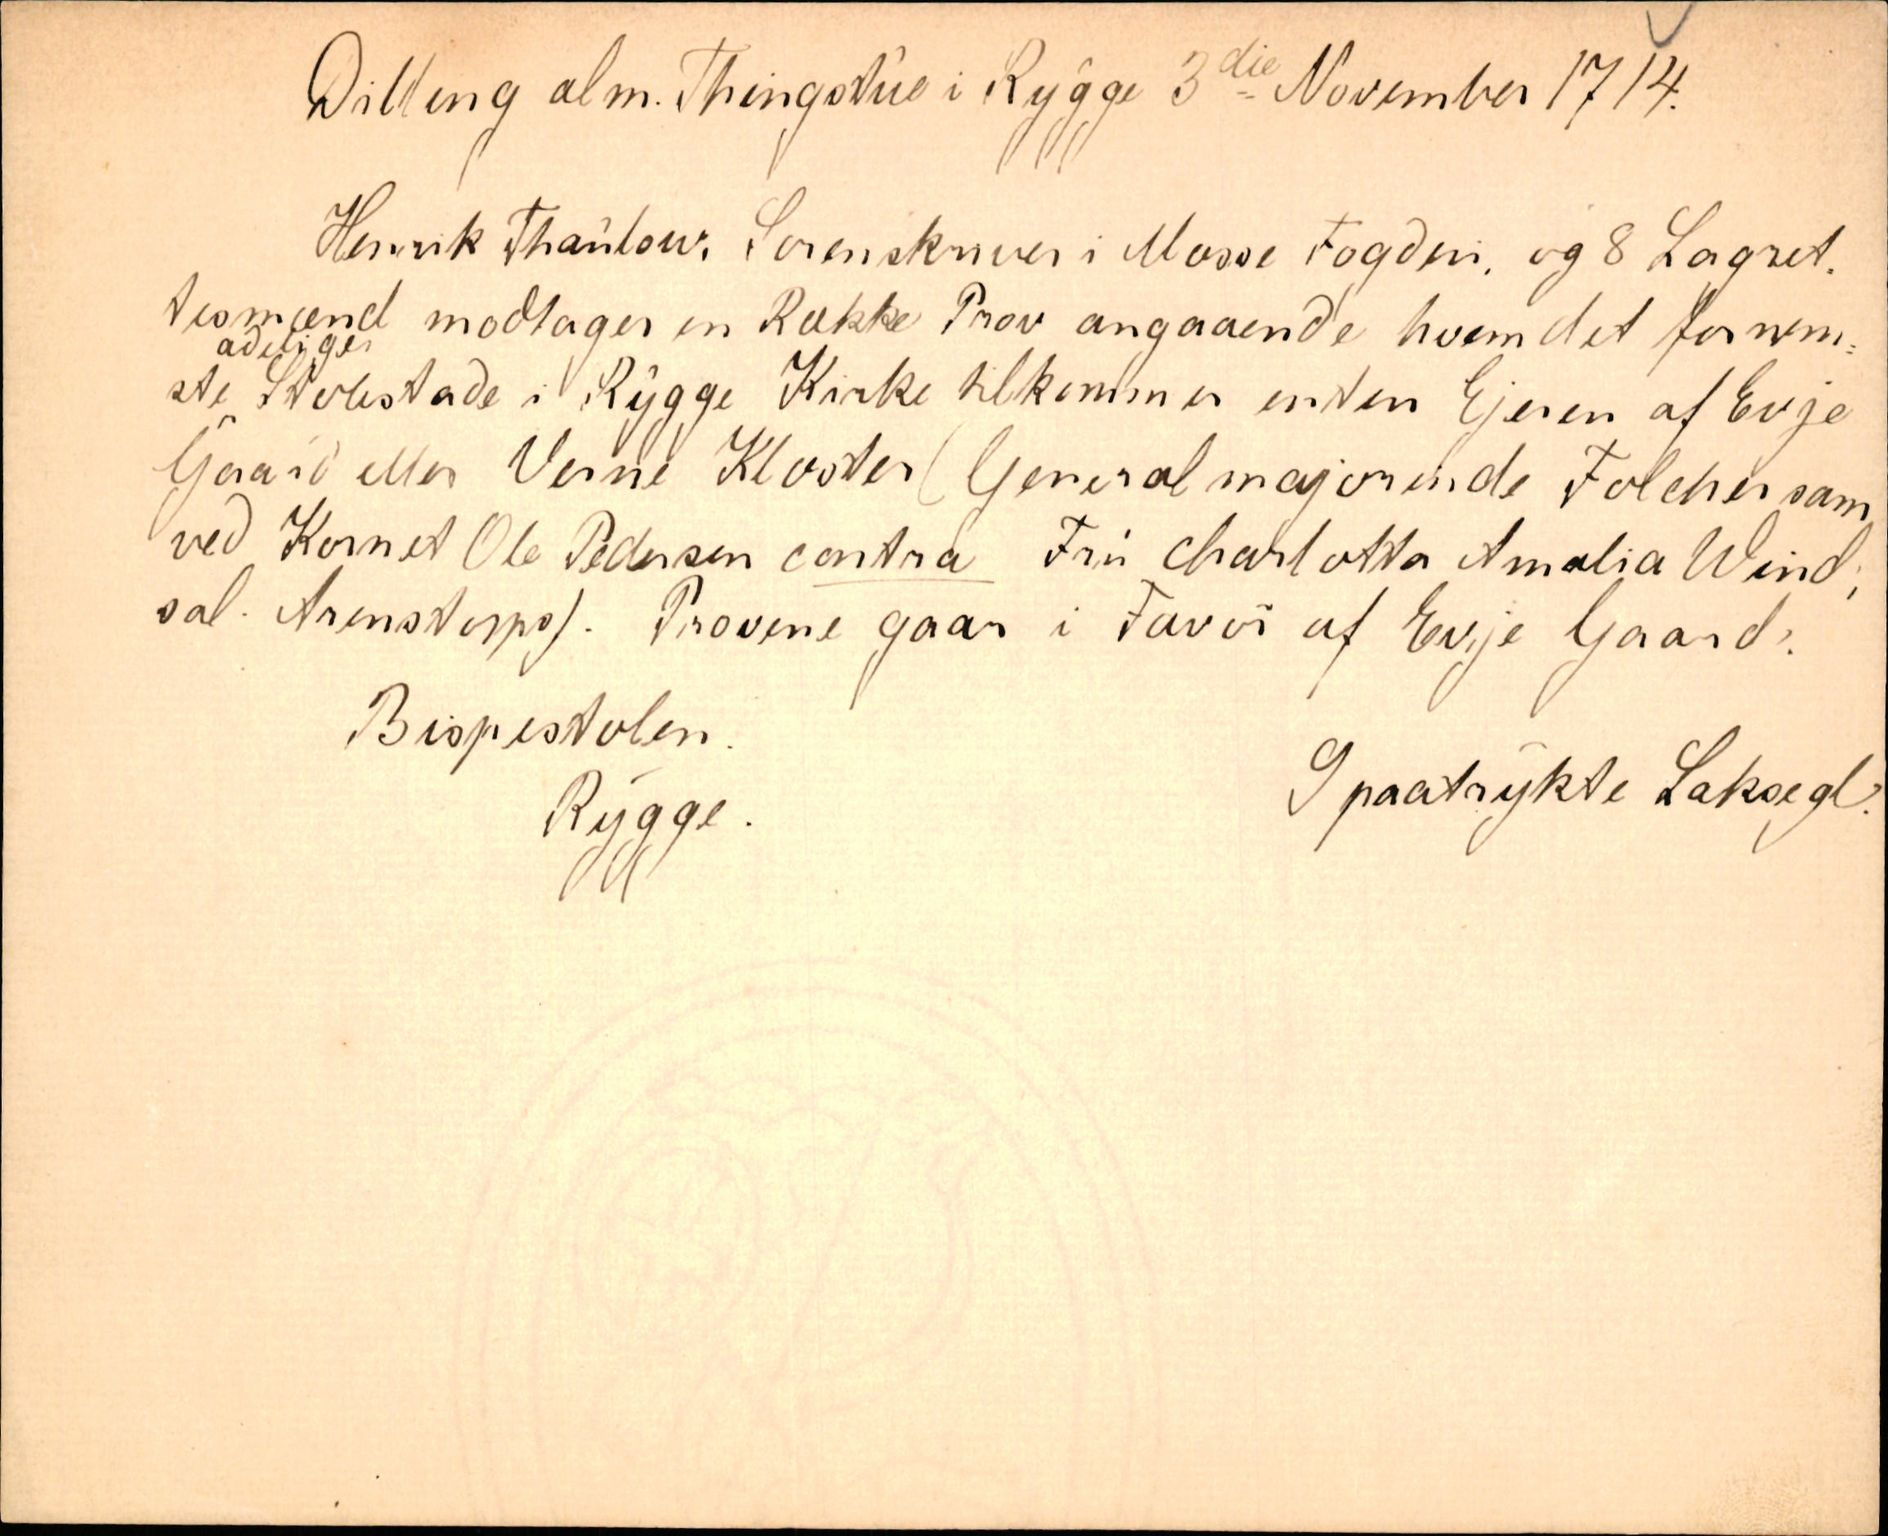 Dilling alm. Thingstue i Rygge 3die November 1714.
Henrik Thaulow, Sorenskriver i Mosse Fogderi, og 8 Lagret.
tesmænd modtager en Række Prov angaaende hvem det fornem=
adelige
ste Stolestade i Rygge Kirke tilkommer enten Ejeren af Evje
Gaard eller Verne Kloster (Generalmajorinde Folchersam
ved Kornet Ole Pedersen contra Fru Charlotta Amalia Wind,
sal. Arenstorps). Provene gaar i Favør af Evje Gaard.
Bispestolen.
Rygge.
9 paatrykte Laksegl.